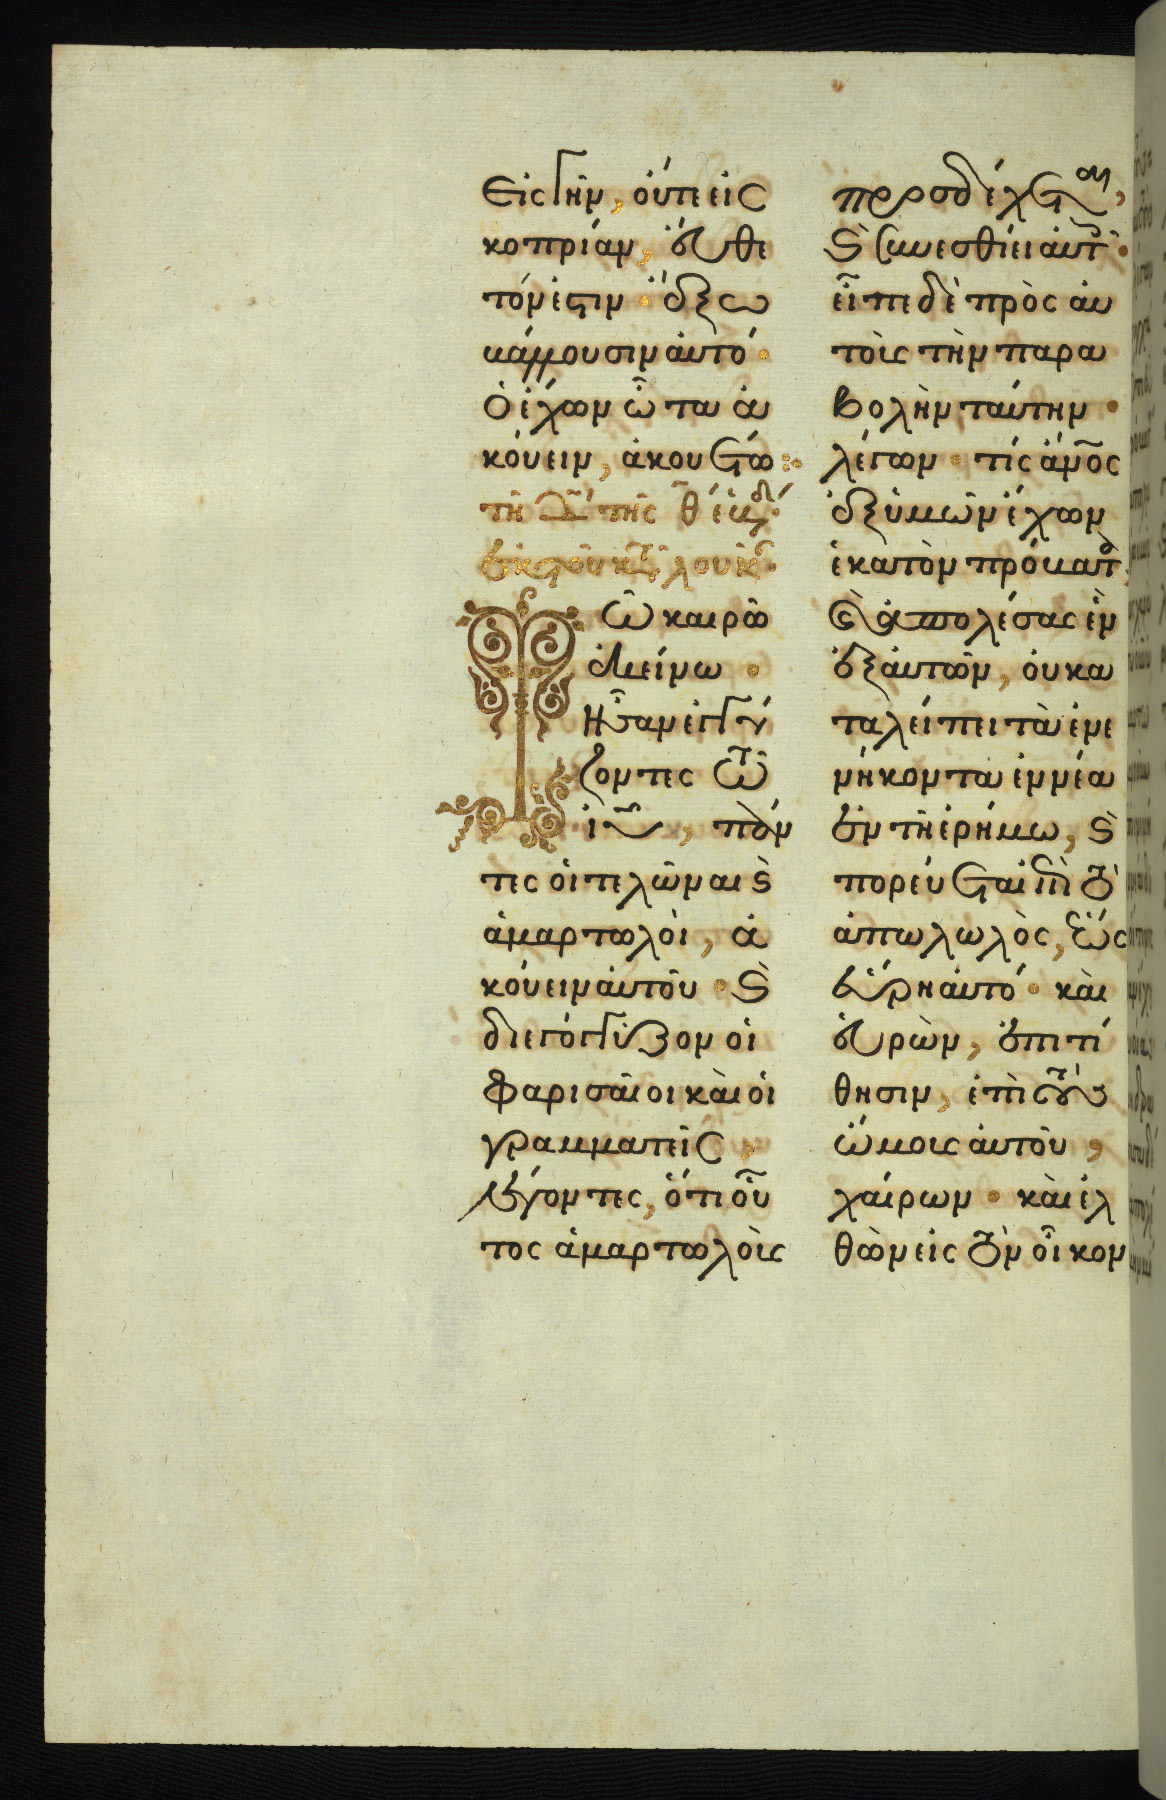 εἰς γῆν, οὔτε εἰς
κοπρίαν, εὔθε
τόν ἐστιν· ἔξω
βάλλουσιν αὐτό·
ὁ ἔχων ὦτα ἀ
κούειν, ἀκουέτω:·
τῇ
τῆς θ ἑβδ
ἐκ τοῦ κατὰ λουκ
Τῶ καιρῶ
ἐκείνω·
ἦσαν ἐγγί
ζοντες τῶ
ιυ, πάν
τες οἱ τελῶναι καὶ
ἁμαρτωλοὶ, ἀ
κούειν αὐτοῦ· καὶ
διεγόγγυζον οἱ
φαρισαῖοι καὶ οἱ
γραμματεῖς,
λέγοντες, ὅτι οὗ
τος ἁμαρτωλοὺς
προσδέχεται,
καὶ συνεσθίει αὐτοῖς·
εἶπε δὲ πρὸς αὐ
τοὺς τὴν παρα
βολὴν ταύτην·
λέγων· τίς ἄνος
ἐξ ὑμῶν ἔχων
ἑκατὸν πρόβατα,
καὶ ἀπολέσας ἓν
ἐξ αὐτῶν, οὐ κα
ταλείπει τὰ ἐνε
νήκοντα ἐννέα
ἐν τῇ ἐρήμω, καὶ
πορεύεται ἐπὶ τὸ
ἀπωλωλὸς, ἕως
εὕρη αὐτό· καὶ
εὑρὼν, ἐπιτί
θησιν, ἐπὶ τοὺς
ὤμους αὐτοῦ,
χαίρων· καὶ ἐλ
θὼν εἰς τὸν οἶκον